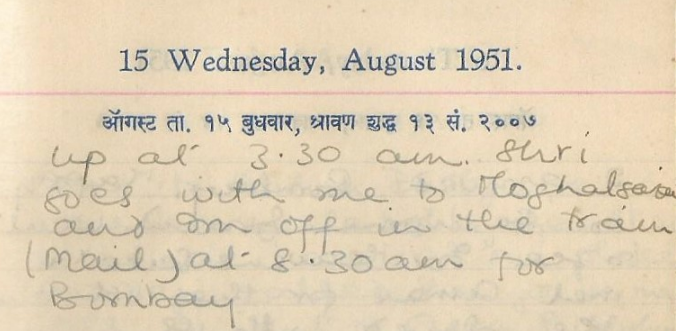 15 Wednesday, August 1951.
ऑगस्ट ता. १५ बुधवार, श्रावण शुद्ध १३ सं. २००७
up at 3.30 am. Shri
goes with me to Moghalsarai
and Im off in the train
(Mail) at 8.30 am for
Bombay